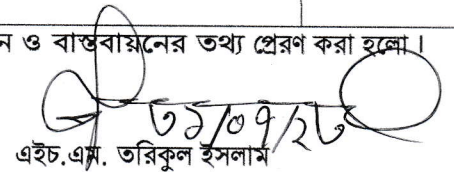 ন ও বাস্তবায়নের তথ্য প্রেরণ করা হলো।
৩১/০৭/২৩
এইচ.এম. তরিকুল ইসলাম